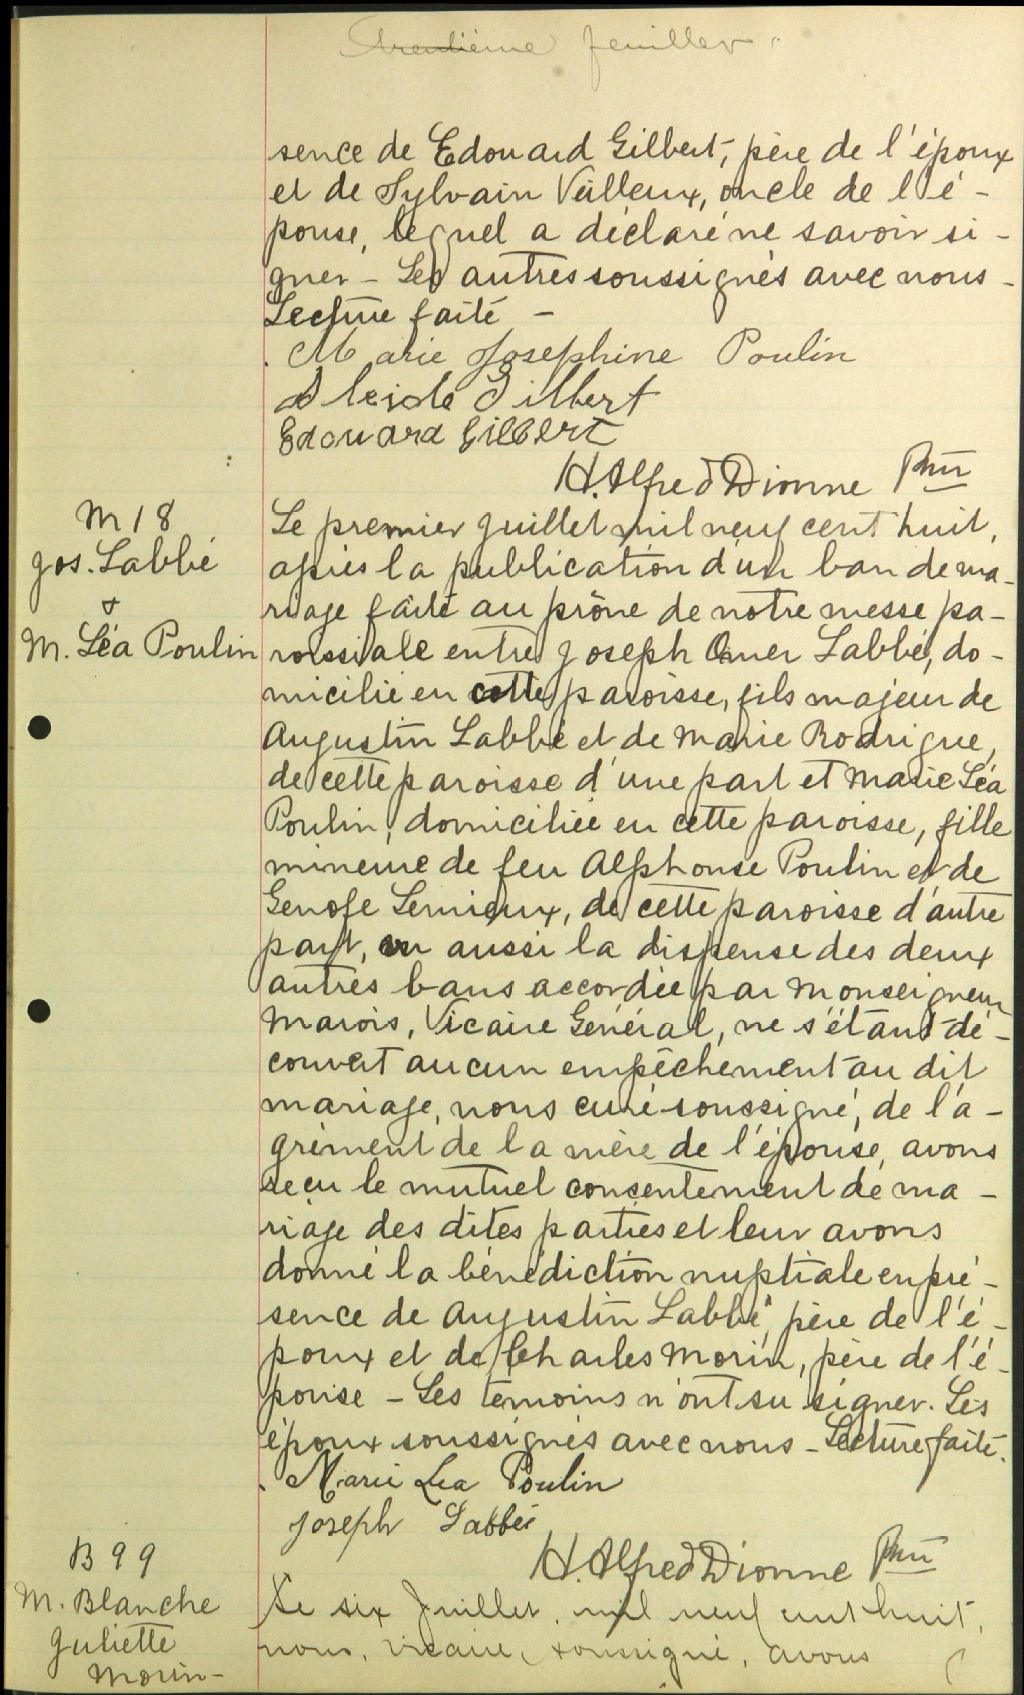 trentième feuillet
sence de Edouard Gilbert, père de l'époux
et de Sylvain Veilleux, oncle de l'é-
pouse, lequel a déclaré ne savoir si-
gner - Les autres soussignés avec nous -
Lecture faite -
Marie Josephine Poulin
Alcide Gilbert
Edouard Gilbert
H. Alfred Dionne Ptre
M 18
Jos. Labbé
&
M. Léa Poulin
Le premier juillet mil neuf cent huit,
après la publication d'un ban de ma-
riage faite au prône de notre messe pa-
roissiale entre Joseph Omer Labbé, do-
micilié en cette paroisse, fils majeur de
Augustin Labbé et de Marie Rodrigue,
de cette paroisse d'une part et Marie Léa
Poulin, domiciliée en cette paroisse, fille
mineure de feu Alphonse Poulin et de
Genofe Lemieux, de cette paroisse d'autre
part, vu aussi la dispense des deux
autres bans accordée par Monseigneur
Marois, Vicaire Général, ne s'étant dé-
couvert aucun empêchement au dit
mariage, nous curé soussigné, de l'a-
grément de la mère de l'épouse, avons
reçu le mutuel consentement de ma-
riage des dites parties et leur avons
donné la bénédiction nuptiale en pré-
sence de Augustin Labbé, père de l'é-
poux et de Charles Morin, père de l'é-
pouse - Les témoins n'ont su signer. Les
époux soussignés avec nous - Lecture faite.
Marie Lea Poulin
Joseph Labbé
H. Alfred Dionne Ptre
B 99
M. Blanche
Juliette
Morin -
Le six Juillet, mil neuf cent huit,
nous, vicaire, soussigné, avons